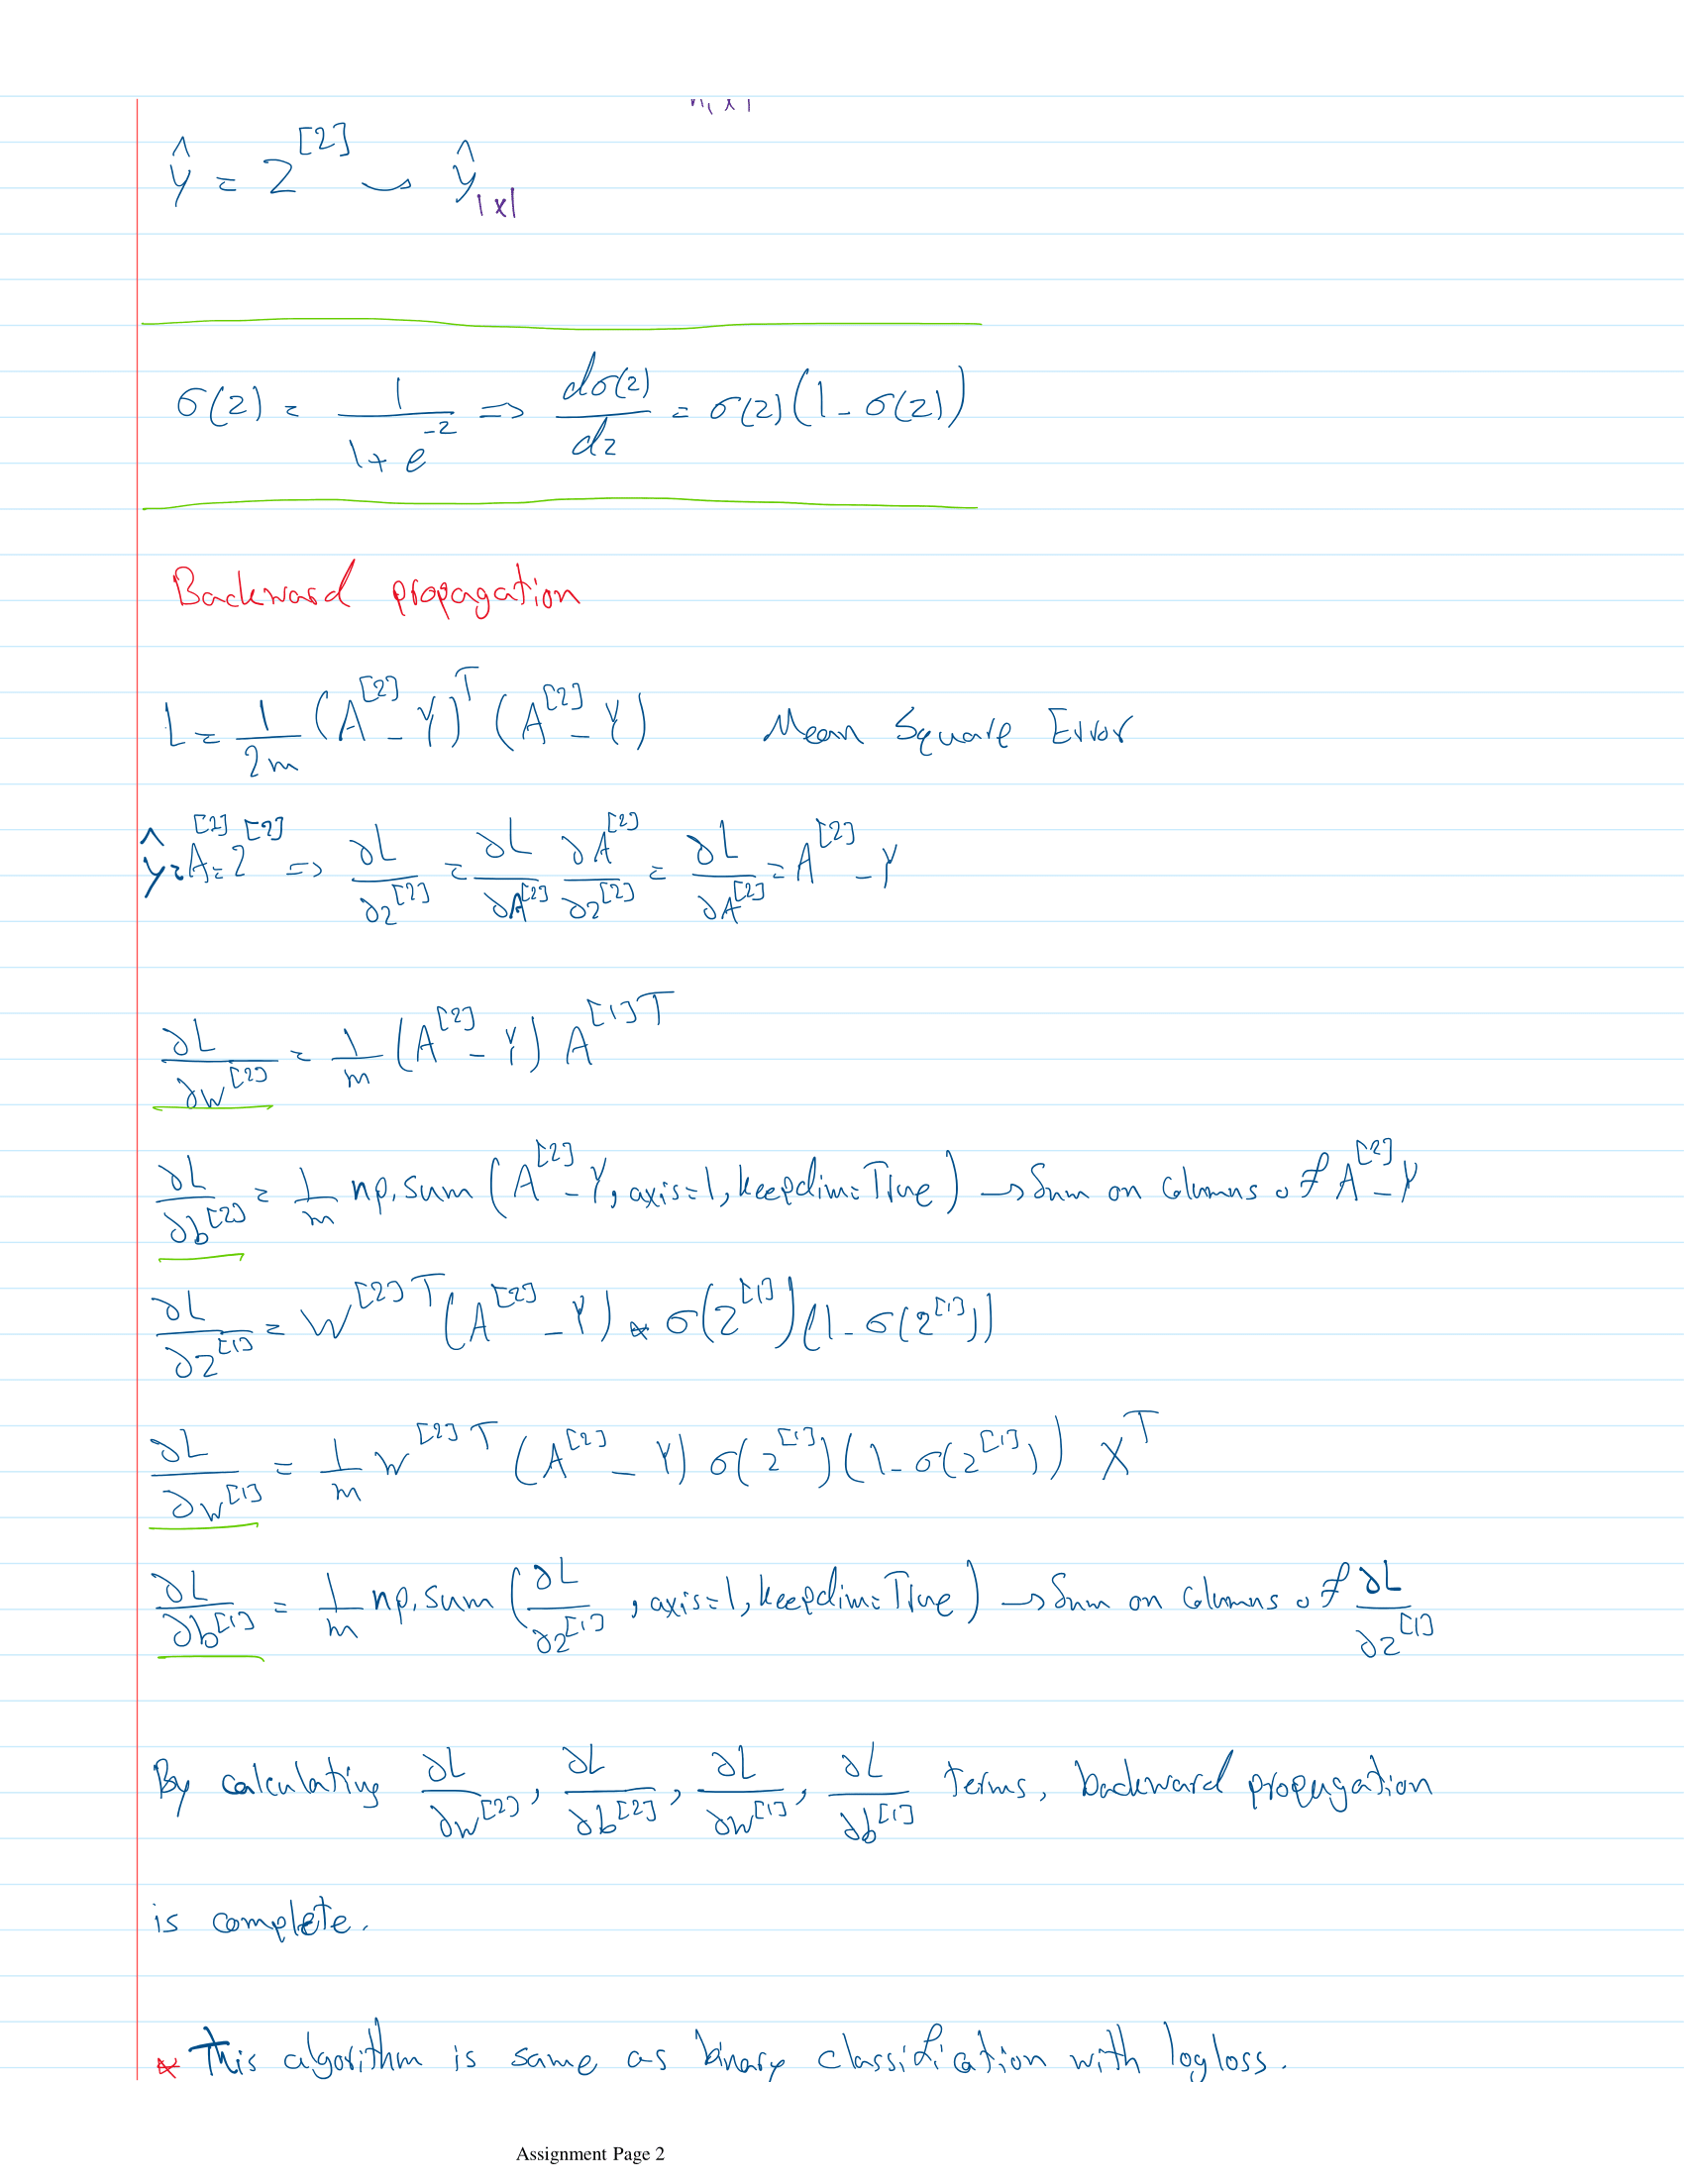 ŷ = Z^[2] → ŷ_1x1
σ(z) = 1 / (1 + e^-z) => dσ(z)/dz = σ(z)(1 - σ(z))
Backward propagation
L = 1/2m (A^[2] - Y)^T (A^[2] - Y) Mean Square Error
ŷ = A^[2] = Z^[2] => ∂L/∂Z^[2] = ∂L/∂A^[2] ∂A^[2]/∂Z^[2] = ∂L/∂A^[2] = A^[2] - Y
∂L/∂W^[2] = 1/m (A^[2] - Y) A^[1]T
∂L/∂b^[2] = 1/m np.sum (A^[2] - Y, axis=1, keepdim=True) → Sum on columns of A^[2] - Y
∂L/∂Z^[1] = W^[2]T (A^[2] - Y) * σ(Z^[1]) (1 - σ(Z^[1]))
∂L/∂W^[1] = 1/m W^[2]T (A^[2] - Y) σ(Z^[1]) (1 - σ(Z^[1])) X^T
∂L/∂b^[1] = 1/m np.sum (∂L/∂Z^[1], axis=1, keepdim=True) → Sum on columns of ∂L/∂Z^[1]
By calculating ∂L/∂W^[2], ∂L/∂b^[2], ∂L/∂W^[1], ∂L/∂b^[1] terms, backward propagation
is complete.
* This algorithm is same as binary classification with logloss.
Assignment Page 2